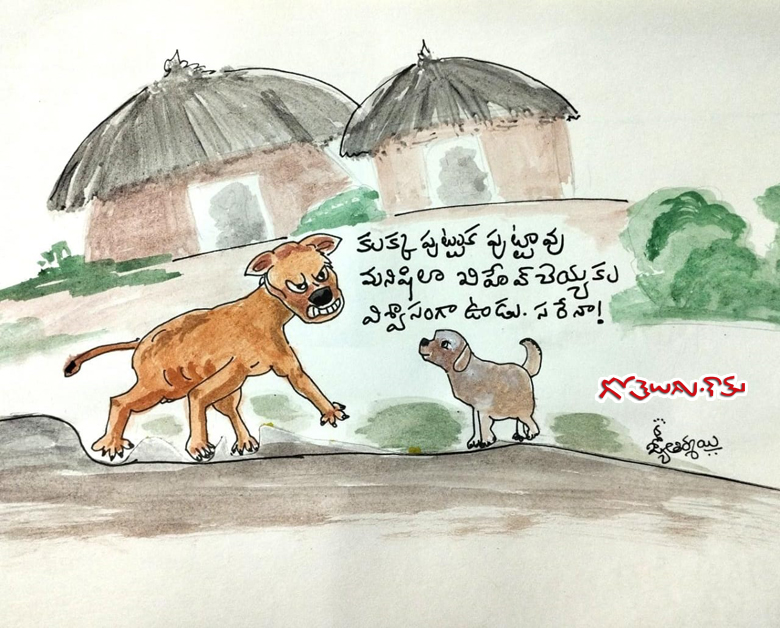 కుక్క పుట్టుక పుట్టావు
మనిషిలా బిహేవ్ చెయ్యకు
విశ్వాసంగా ఉండు. సరేనా!
గోతెలుగు.కామ్
జ్యోతిర్మయి